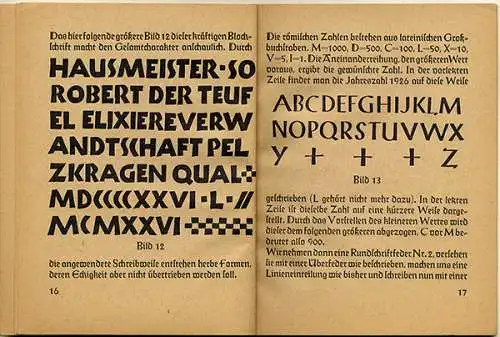 Das hier folgende größere Bild 12 dieser kräftigen Block-
schrift macht den Gesamtcharakter anschaulich. Durch
HAUSMEISTER·SO
ROBERT DER TEUF
EL ELIXIEREVERW
ANDTSCHAFT PEL
ZKRAGEN QUAL
MDCCCCXXVI·L·//
MCMXXVI
Bild 12
die angewendete Schreibweise entstehen herbe Formen,
deren Eckigkeit aber nicht übertrieben werden soll.
16
Die römischen Zahlen bestehen aus lateinischen Groß-
buchstaben. M=1000, D=500, C=100, L=50, X=10,
V=5, I=1. Die Aneinanderreihung, den größeren Wert
voraus, ergibt die gewünschte Zahl. In der vorletzten
Zeile findet man die Jahreszahl 1926 auf diese Weise
ABCDEFGHIJKLM
NOPQRSTUVWX
Y + + + Z
Bild 13
geschrieben (L gehört nicht mehr dazu). In der letzten
Zeile ist dieselbe Zahl auf eine kürzere Weise darge-
stellt. Durch das Vorstellen des kleineren Wertes wird
dieser von dem folgenden größeren abgezogen. C vor M be-
deutet also 900.
Wir nehmen dann eine Rundschriftfeder Nr. 2, versehen
sie mit einer Überfeder wie beschrieben, machen uns eine
Linieneinteilung wie bisher und schreiben nun mit einer
17